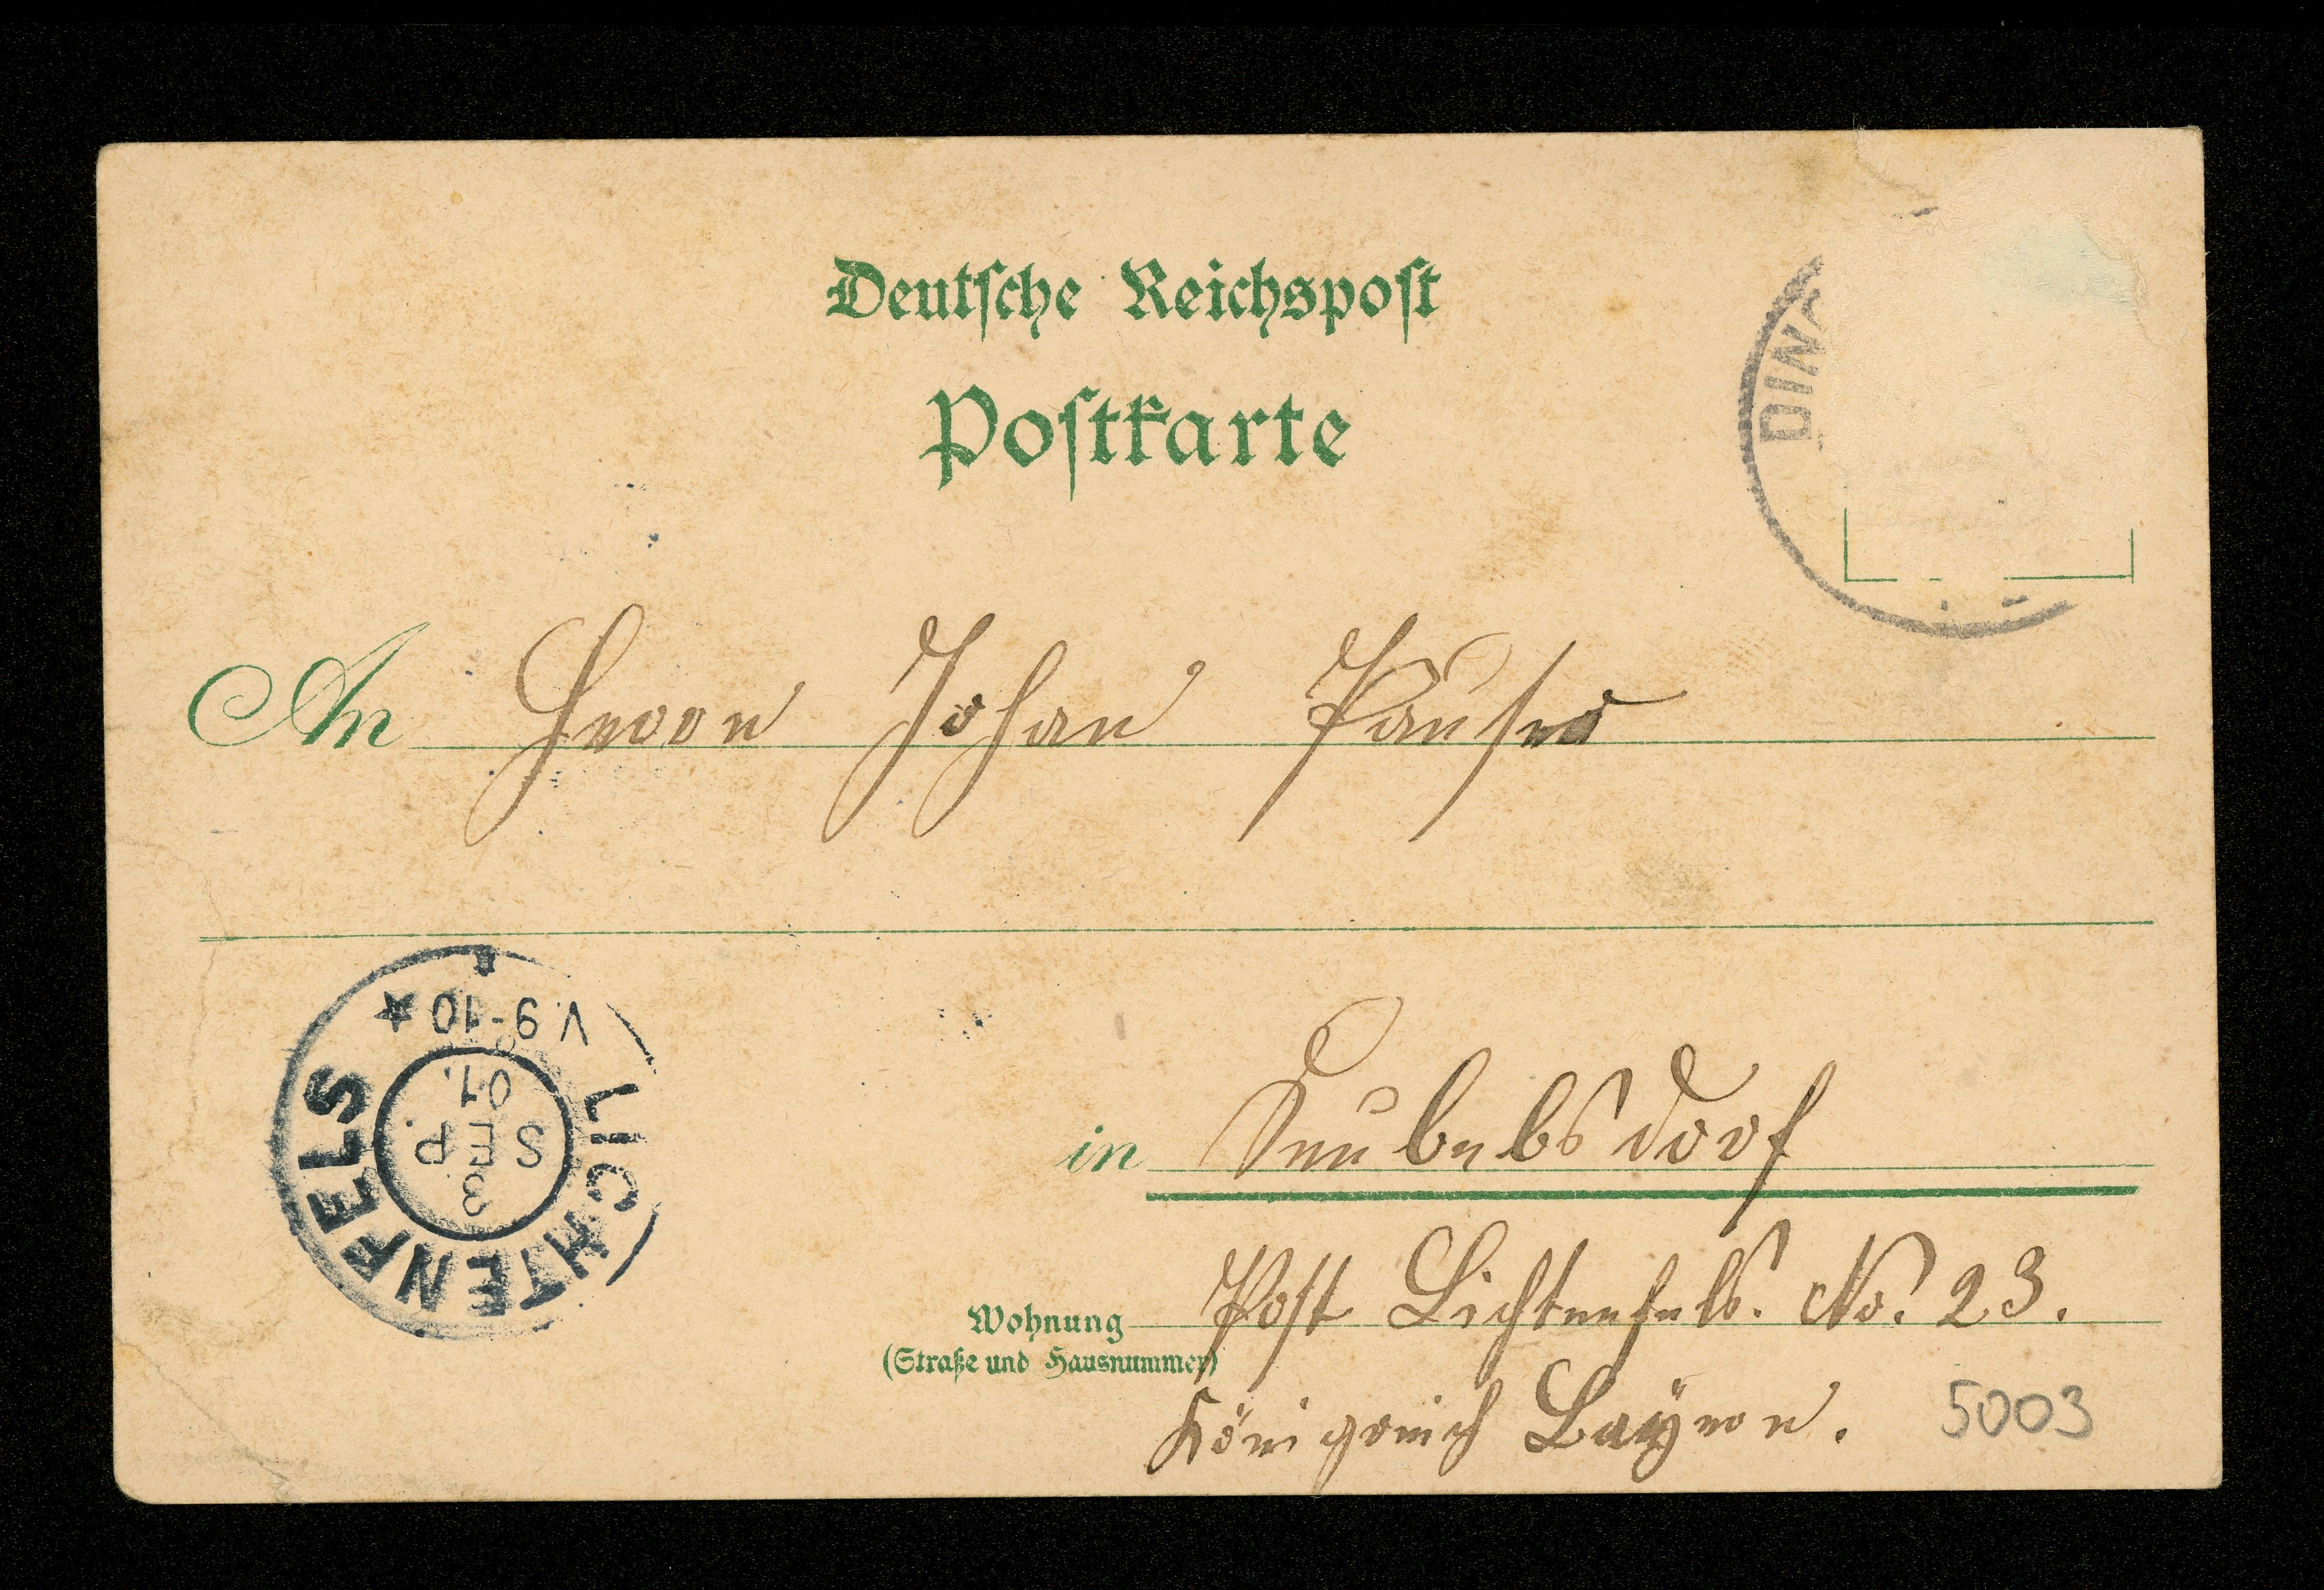 Deutsche Reichspost
Postkarte
DIN
An Herrn Johan Pauser
LICHTENFELS
V. 9-10
3
SEP.
01.
in Seubelsdorf
Wohnung Post Lichtenfels. No. 23.
(Straße und Hausnummer)
Königreich Bayern. 5003